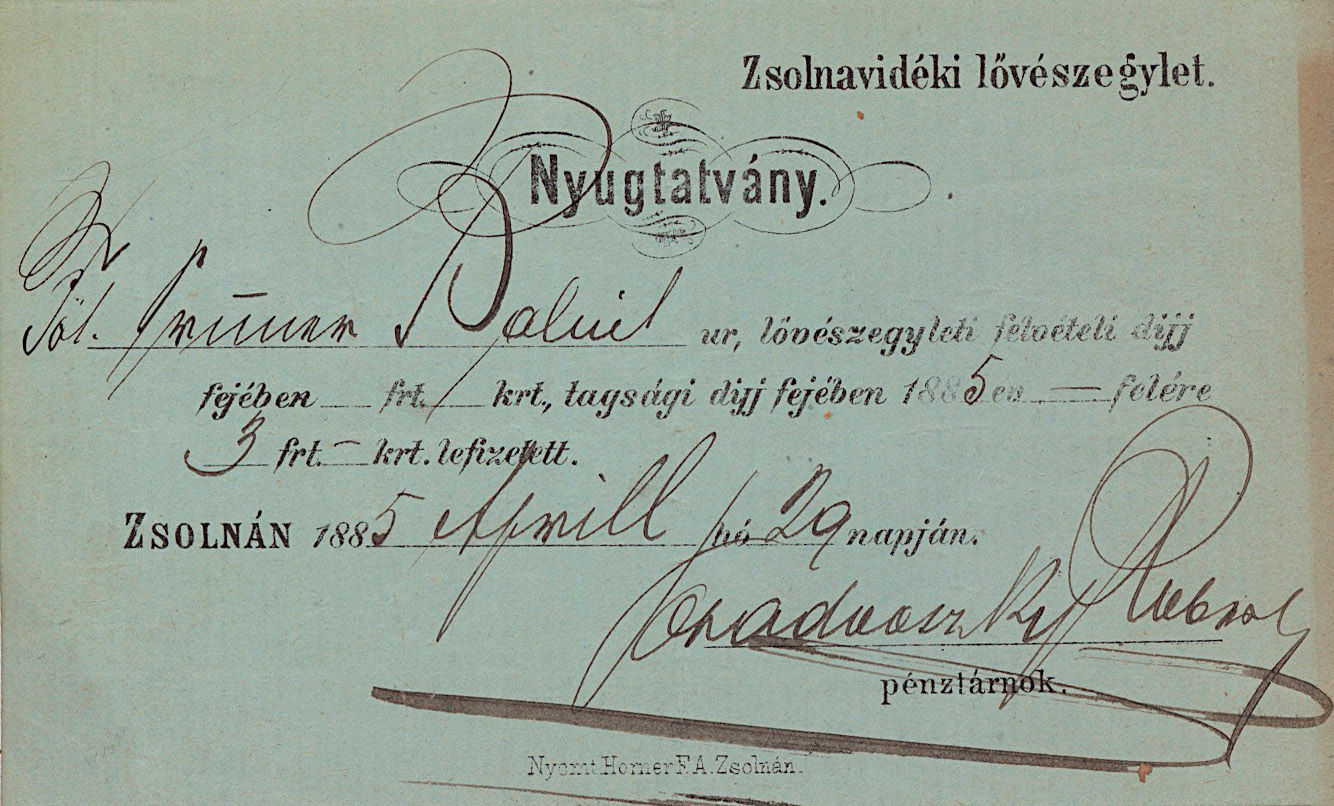 Zsolnavidéki lővészegylet.
Nyugtatvány.
Tól. ur, lövészegyleti felvételi dijj
fejében frt. krt., tagsági dijj fejében 1885 en — felére
3 frt. – krt. lefizetett.
ZSOLNÁN 1885 Aprill hó 29 napján.
pénztárnok.
Nyomt. Horner F. A. Zsolnán.